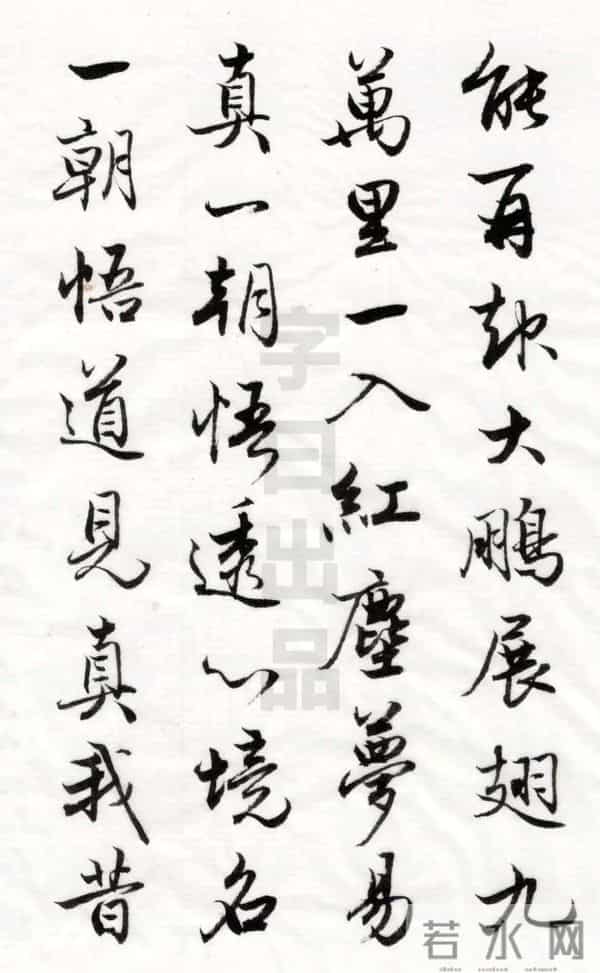 能再大鵬展翅九
萬里一入紅塵夢易
真一朝悟透心境名
一朝悟道見真我昔
字曰出品
若水网